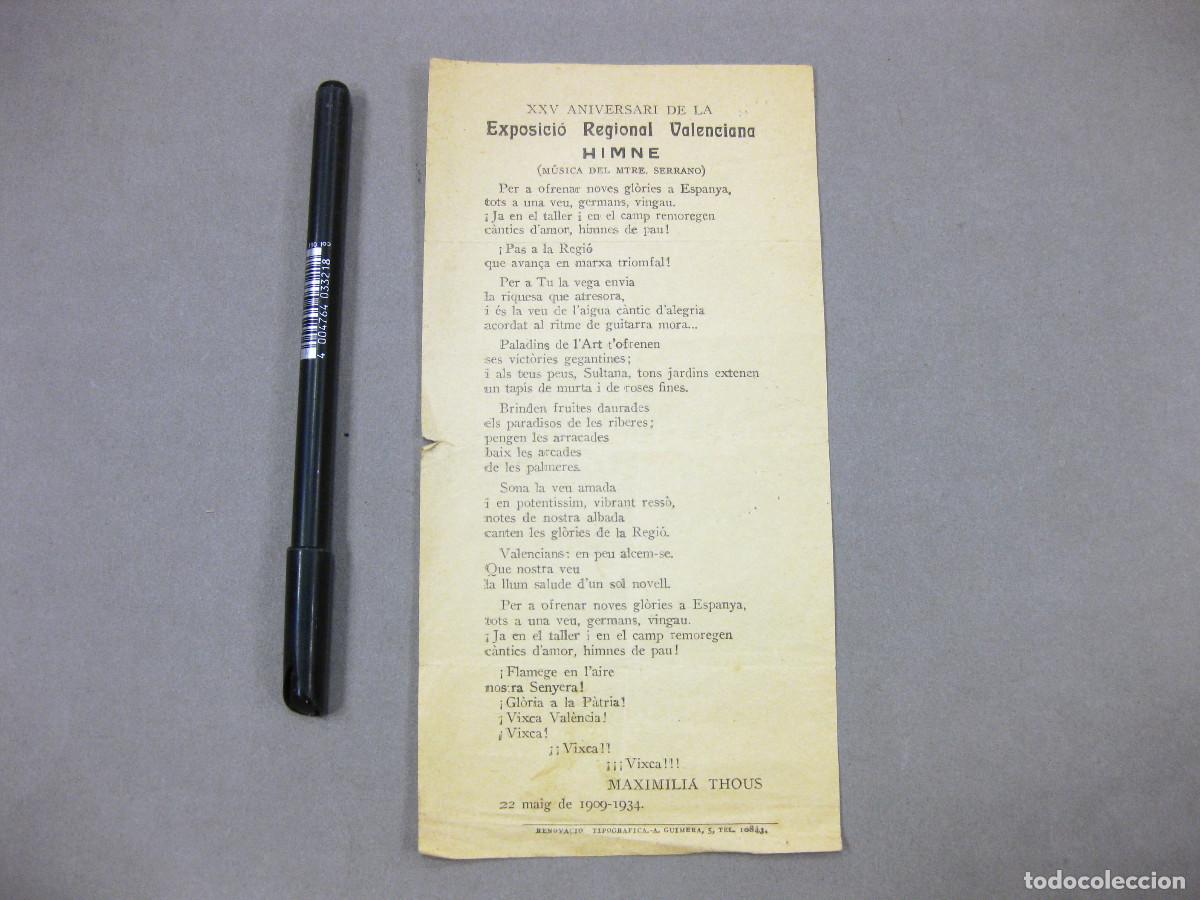 XXV ANIVERSARI DE LA
Exposició Regional Valenciana
HIMNE
(MÚSICA DEL MTRE. SERRANO)
Per a ofrenar noves glòries a Espanya,
tots a una veu, germans, vingau.
¡Ja en el taller i en el camp remoregen
càntics d'amor, himnes de pau!
¡Pas a la Regió
que avança en marxa triomfal!
Per a Tu la vega envia
la riquesa que atresora,
i és la veu de l'aigua càntic d'alegria
acordat al ritme de guitarra mora...
Paladins de l'Art t'ofrenen
ses victòries gegantines;
i als teus peus, Sultana, tons jardins extenen
un tapis de murta i de roses fines.
Brinden fruites daurades
els paradisos de les riberes;
pengen les arracades
baix les arcades
de les palmeres.
Sona la veu amada
i en potentissim, vibrant ressò,
notes de nostra albada
canten les glòries de la Regió.
Valencians: en peu alcem-se.
Que nostra veu
la llum salude d'un sol novell.
Per a ofrenar noves glòries a Espanya,
tots a una veu, germans, vingau.
¡Ja en el taller i en el camp remoregen
càntics d'amor, himnes de pau!
¡Flamege en l'aire
nostra Senyera!
¡Glòria a la Pàtria!
¡Vixca València!
¡Vixca!
¡¡Vixca!!
¡¡¡Vixca!!!
MAXIMILIÁ THOUS
22 maig de 1909-1934.
RENOVACIO TIPOGRAFICA.-A. GUIMERA, 5, TEL. 10843.
4 004764 033218
todocoleccion